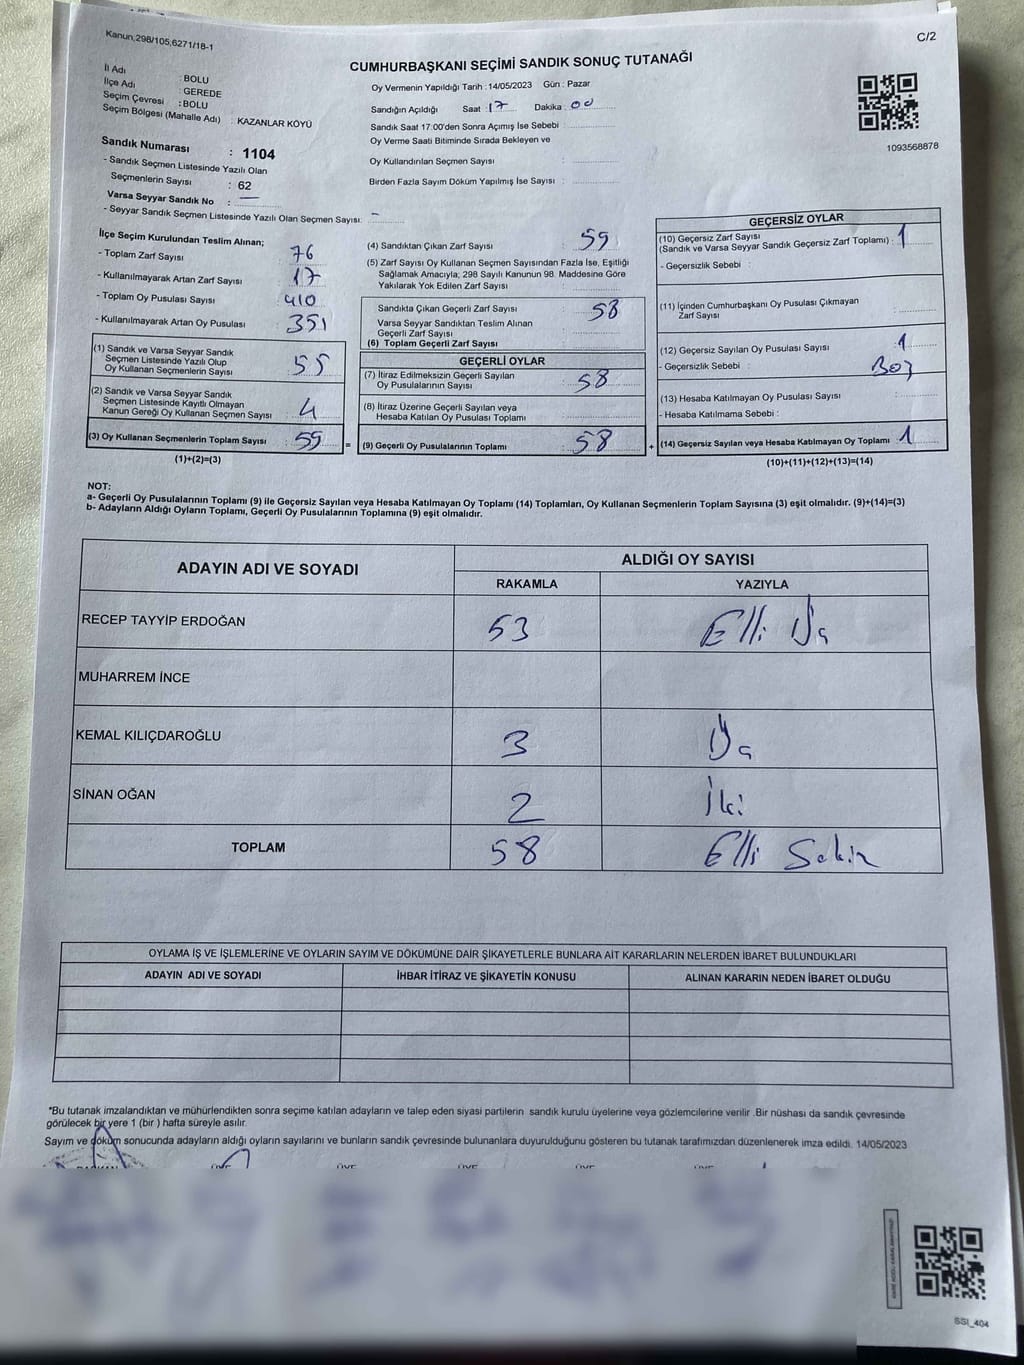 Kanun,298/105,6271/18-1
C/2
CUMHURBAŞKANI SEÇİMİ SANDIK SONUÇ TUTANAĞI
İl Adı : BOLU
İlçe Adı : GEREDE
Seçim Çevresi : BOLU
Seçim Bölgesi (Mahalle Adı) : KAZANLAR KÖYÜ
Sandık Numarası : 1104
- Sandık Seçmen Listesinde Yazılı Olan
Seçmenlerin Sayısı : 62
Varsa Seyyar Sandık No : —
- Seyyar Sandık Seçmen Listesinde Yazılı Olan Seçmen Sayısı: –
Oy Vermenin Yapıldığı Tarih : 14/05/2023 Gün : Pazar
Sandığın Açıldığı Saat : 17 Dakika : 00
Sandık Saat 17:00'den Sonra Açımış İse Sebebi :
Oy Verme Saati Bitiminde Sırada Bekleyen ve
Oy Kullandırılan Seçmen Sayısı :
Birden Fazla Sayım Döküm Yapılmış İse Sayısı :
1093568878
İlçe Seçim Kurulundan Teslim Alınan;
- Toplam Zarf Sayısı : 76
- Kullanılmayarak Artan Zarf Sayısı : 17
- Toplam Oy Pusulası Sayısı : 410
- Kullanılmayarak Artan Oy Pusulası : 351
(1) Sandık ve Varsa Seyyar Sandık
Seçmen Listesinde Yazılı Olup
Oy Kullanan Seçmenlerin Sayısı : 55
(2) Sandık ve Varsa Seyyar Sandık
Seçmen Listesinde Kayıtlı Olmayan
Kanun Gereği Oy Kullanan Seçmen Sayısı : 4
(3) Oy Kullanan Seçmenlerin Toplam Sayısı : 59 =
(1)+(2)=(3)
(4) Sandıktan Çıkan Zarf Sayısı : 59
(5) Zarf Sayısı Oy Kullanan Seçmen Sayısından Fazla İse, Eşitliği
Sağlamak Amacıyla; 298 Sayılı Kanunun 98. Maddesine Göre
Yakılarak Yok Edilen Zarf Sayısı :
Sandıkta Çıkan Geçerli Zarf Sayısı : 58
Varsa Seyyar Sandıktan Teslim Alınan
Geçerli Zarf Sayısı :
(6) Toplam Geçerli Zarf Sayısı :
GEÇERLİ OYLAR
(7) İtiraz Edilmeksizin Geçerli Sayılan
Oy Pusulalarının Sayısı : 58
(8) İtiraz Üzerine Geçerli Sayılan veya
Hesaba Katılan Oy Pusulası Toplamı :
(9) Geçerli Oy Pusulalarının Toplamı : 58 +
GEÇERSİZ OYLAR
(10) Geçersiz Zarf Sayısı
(Sandık ve Varsa Seyyar Sandık Geçersiz Zarf Toplamı) : 1
- Geçersizlik Sebebi :
(11) İçinden Cumhurbaşkanı Oy Pusulası Çıkmayan
Zarf Sayısı :
(12) Geçersiz Sayılan Oy Pusulası Sayısı : 1
- Geçersizlik Sebebi : Boş
(13) Hesaba Katılmayan Oy Pusulası Sayısı :
- Hesaba Katılmama Sebebi :
(14) Geçersiz Sayılan veya Hesaba Katılmayan Oy Toplamı : 1
(10)+(11)+(12)+(13)=(14)
NOT:
a- Geçerli Oy Pusulalarının Toplamı (9) ile Geçersiz Sayılan veya Hesaba Katılmayan Oy Toplamı (14) Toplamları, Oy Kullanan Seçmenlerin Toplam Sayısına (3) eşit olmalıdır. (9)+(14)=(3)
b- Adayların Aldığı Oyların Toplamı, Geçerli Oy Pusulalarının Toplamına (9) eşit olmalıdır.
ADAYIN ADI VE SOYADI ALDIĞI OY SAYISI
RAKAMLA YAZIYLA
RECEP TAYYİP ERDOĞAN 53 Elli Üç
MUHARREM İNCE
KEMAL KILIÇDAROĞLU 3 Üç
SİNAN OĞAN 2 İki
TOPLAM 58 Elli Sekiz
OYLAMA İŞ VE İŞLEMLERİNE VE OYLARIN SAYIM VE DÖKÜMÜNE DAİR ŞİKAYETLERLE BUNLARA AİT KARARLARIN NELERDEN İBARET BULUNDUKLARI
ADAYIN ADI VE SOYADI İHBAR İTİRAZ VE ŞİKAYETİN KONUSU ALINAN KARARIN NEDEN İBARET OLDUĞU
*Bu tutanak imzalandıktan ve mühürlendikten sonra seçime katılan adayların ve talep eden siyasi partilerin sandık kurulu üyelerine veya gözlemcilerine verilir .Bir nüshası da sandık çevresinde
görülecek bir yere 1 (bir ) hafta süreyle asılır.
Sayım ve döküm sonucunda adayların aldığı oyların sayılarını ve bunların sandık çevresinde bulunanlara duyurulduğunu gösteren bu tutanak tarafımızdan düzenlenerek imza edildi. 14/05/2023
BAŞKAN ÜYE ÜYE ÜYE ÜYE ÜYE
SSI_404